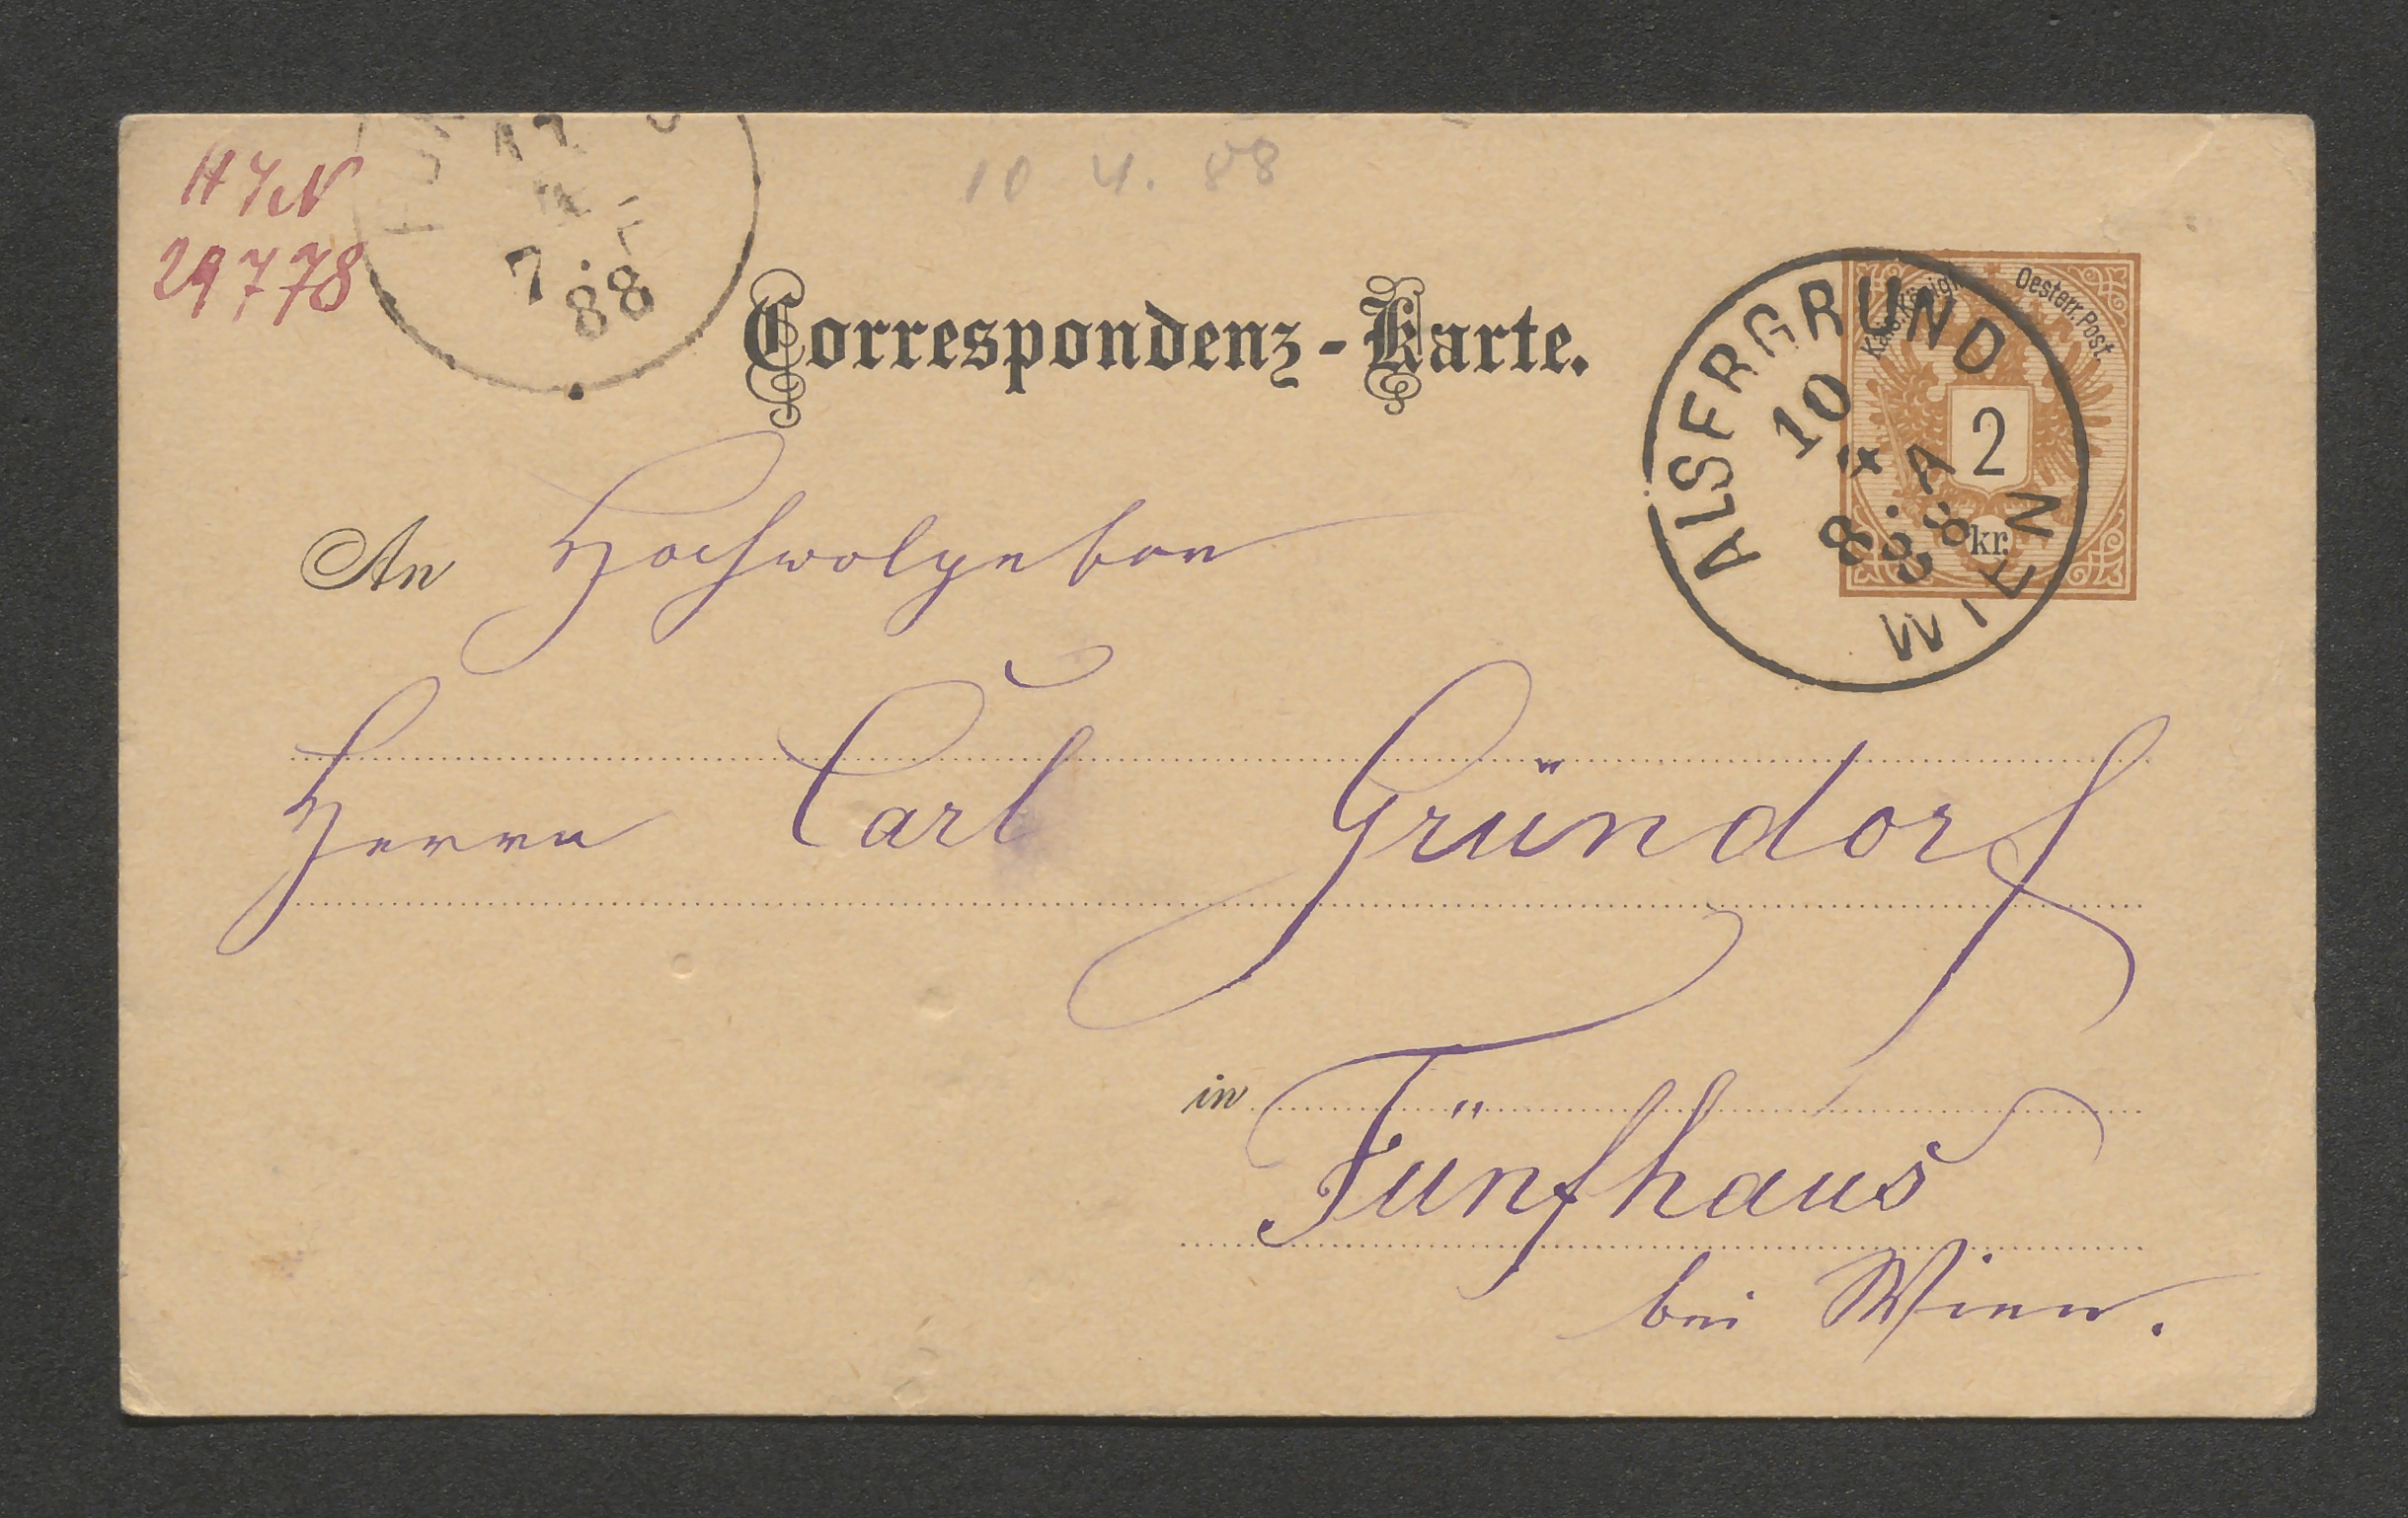 HIN
29778
7.
88
10 4. 88
Correspondenz-Karte.
Kais. Königl. Oesterr. Post.
2
kr.
ALSERGRUND
10
4
8. A
88
WIEN
An Hochwolgeborn
Herrn Carl Gründorf
in Fünfhaus
bei Wien.